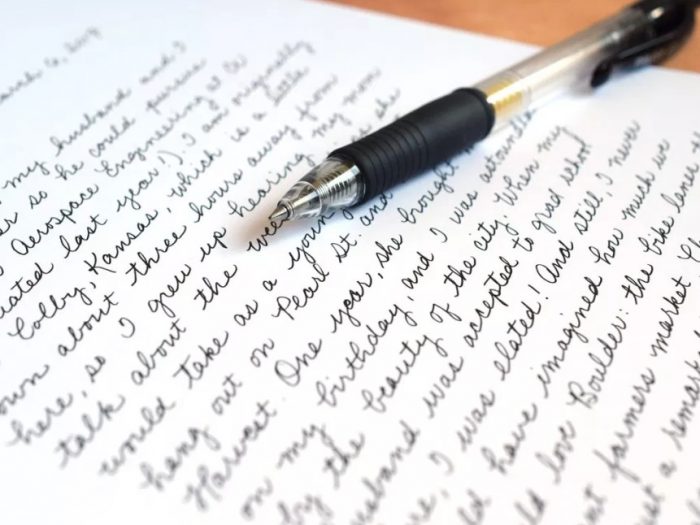 my husband and I
er so he could pursue
Aerospace Engineering at CU
uated last year!). I am originally
Colby, Kansas, which is a little
own about three hours away from
here, so I grew up hearing my mom
talk about the wee she
would take as a youn
hang out on Pearl St. and
Harvest. One year, she brought
on my birthday, and I was astounde
by the beauty of the city. When my
usband was accepted to grad school
re, I was elated! And still, I never
ld have imagined how much we
ld love Boulder: the bike lanes
nt farmers market
a remark